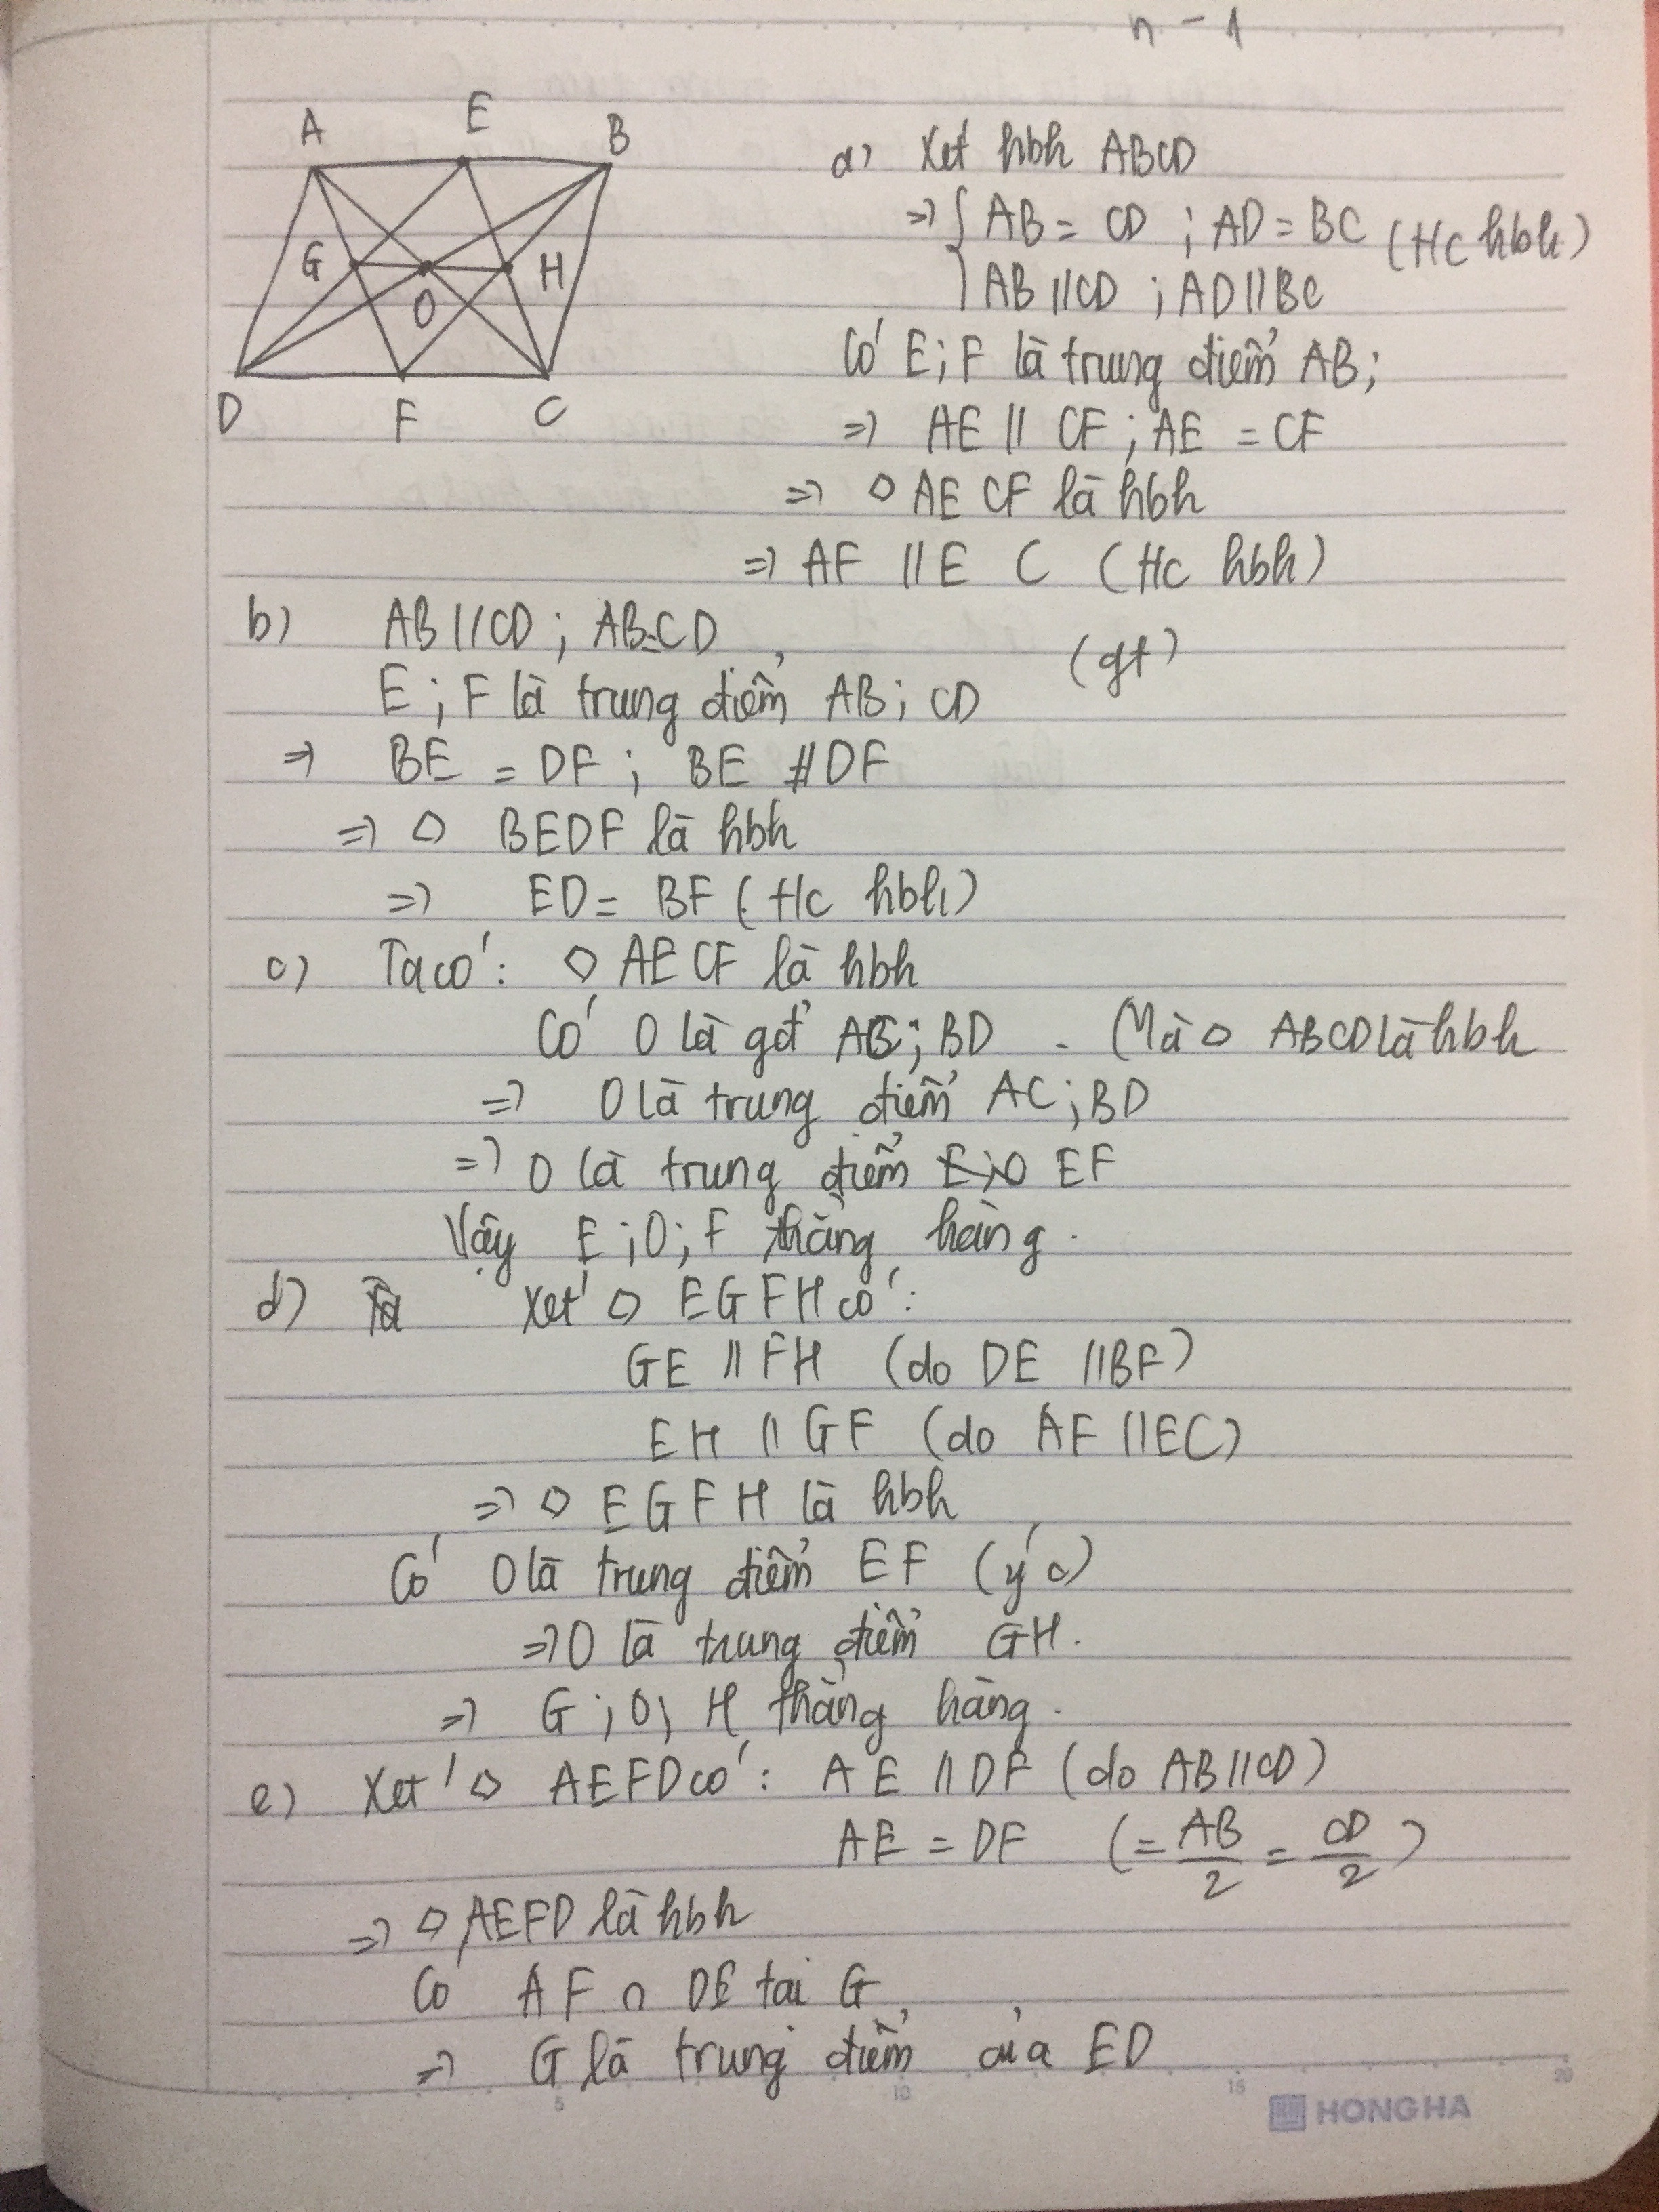 n - 1
A E B
G H
O
D F C
a) Xét hbh ABCD
=> { AB = CD ; AD = BC (Hc hbh)
AB // CD ; AD // BC
Có E ; F là trung điểm AB ;
=> AE // CF ; AE = CF
=> ◇ AECF là hbh
=> AF // E C (Hc hbh)
b) AB // CD ; AB = CD
(gt)
E ; F là trung điểm AB ; CD
=> BE = DF ; BE // DF
=> ◇ BEDF là hbh
=> ED = BF (Hc hbh)
c) Ta có : ◇ AECF là hbh
Có O là gđ AC ; BD - (Mà ◇ ABCD là hbh
=> O là trung điểm AC ; BD
=> O là trung điểm EF
Vậy E ; O ; F thẳng hàng .
d) Xét ◇ EGFH có :
GE // FH (do DE // BF)
EH // GF (do AF // EC)
=> ◇ EGFH là hbh
Có O là trung điểm EF (ý c)
=> O là trung điểm GH .
=> G ; O ; H thẳng hàng .
e) Xét ◇ AEFD có : AE // DF (do AB // CD)
AE = DF (= AB/2 = CD/2)
=> ◇ AEFD là hbh
Có AF ∩ DE tai G
=> G là trung điểm của ED
5 10 15 20
HONG HA